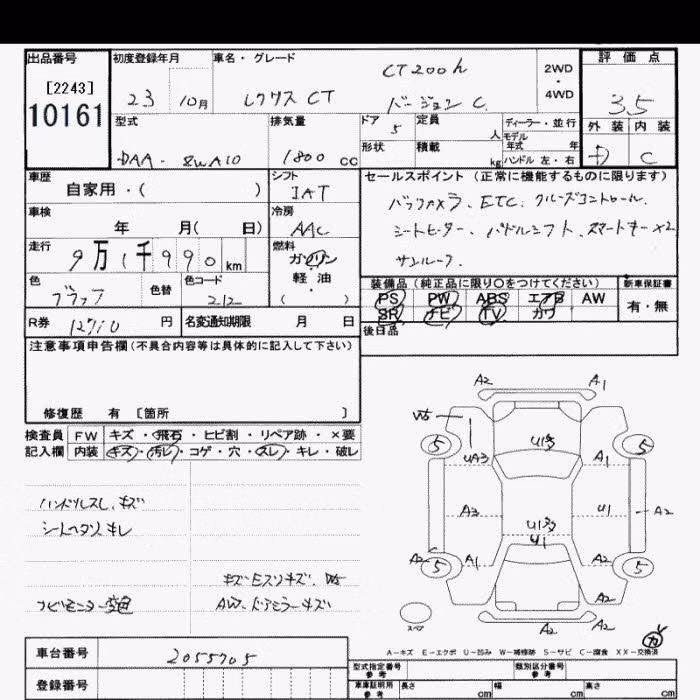 出品番号 初度登録年月 車名・グレード 評価点
[2243] CT200h 2WD
・
10161 23 10月 レクサスCT バージョンC 4WD 3.5
型式 排気量 ドア 5 定員 人 ディーラー・並行 外装 内装
モデル年式 年
DAA- ZWA10 1800 cc 形状 積載 kg ハンドル 左・右 D C
車歴 シフト セールスポイント(正常に機能するものに限ります)
自家用・( ) IAT バックカメラ、ETC、クルーズコントロール、
車検 冷房 シートヒーター、パドルシフト、スマートキー×2
年 月( 日) AAC サンルーフ、
走行 燃料
9万1千990km ガソリン
軽油
・
( )
色 色替 色コード 装備品(純正品に限り○をつけてください) 新車保証書
ブラック 212 PS PW ABS エアB AW 有・無
SR ナビ TV カワ
R券 12710 円 名変通知期限 月 日 後日品
注意事項申告欄(不具合内容等は具体的に記入して下さい)
修復歴 有 [箇所 ]
検査員 FW キズ・飛石・ヒビ割・リペア跡・×要
記入欄 内装 キズ・汚レ・コゲ・穴・スレ・キレ・破レ
ハンドルスレ、キズ
キズ
AW、ドアミラーキズ
ナビモニター変色
A2 A1
W5
5 5
UA3 A1
A3 U1 A2
U1
A2 A1 A2
5 5
A2
A2 A2
スペア
A-キズ E-エクボ U-凹み W-補修跡 S-サビ C-腐食 XX-交換済
車台番号 2055705
登録番号
型式指定番号 参考 類別区分番号 参考
車庫証明用 参考 長さ cm 幅 cm 高さ cm